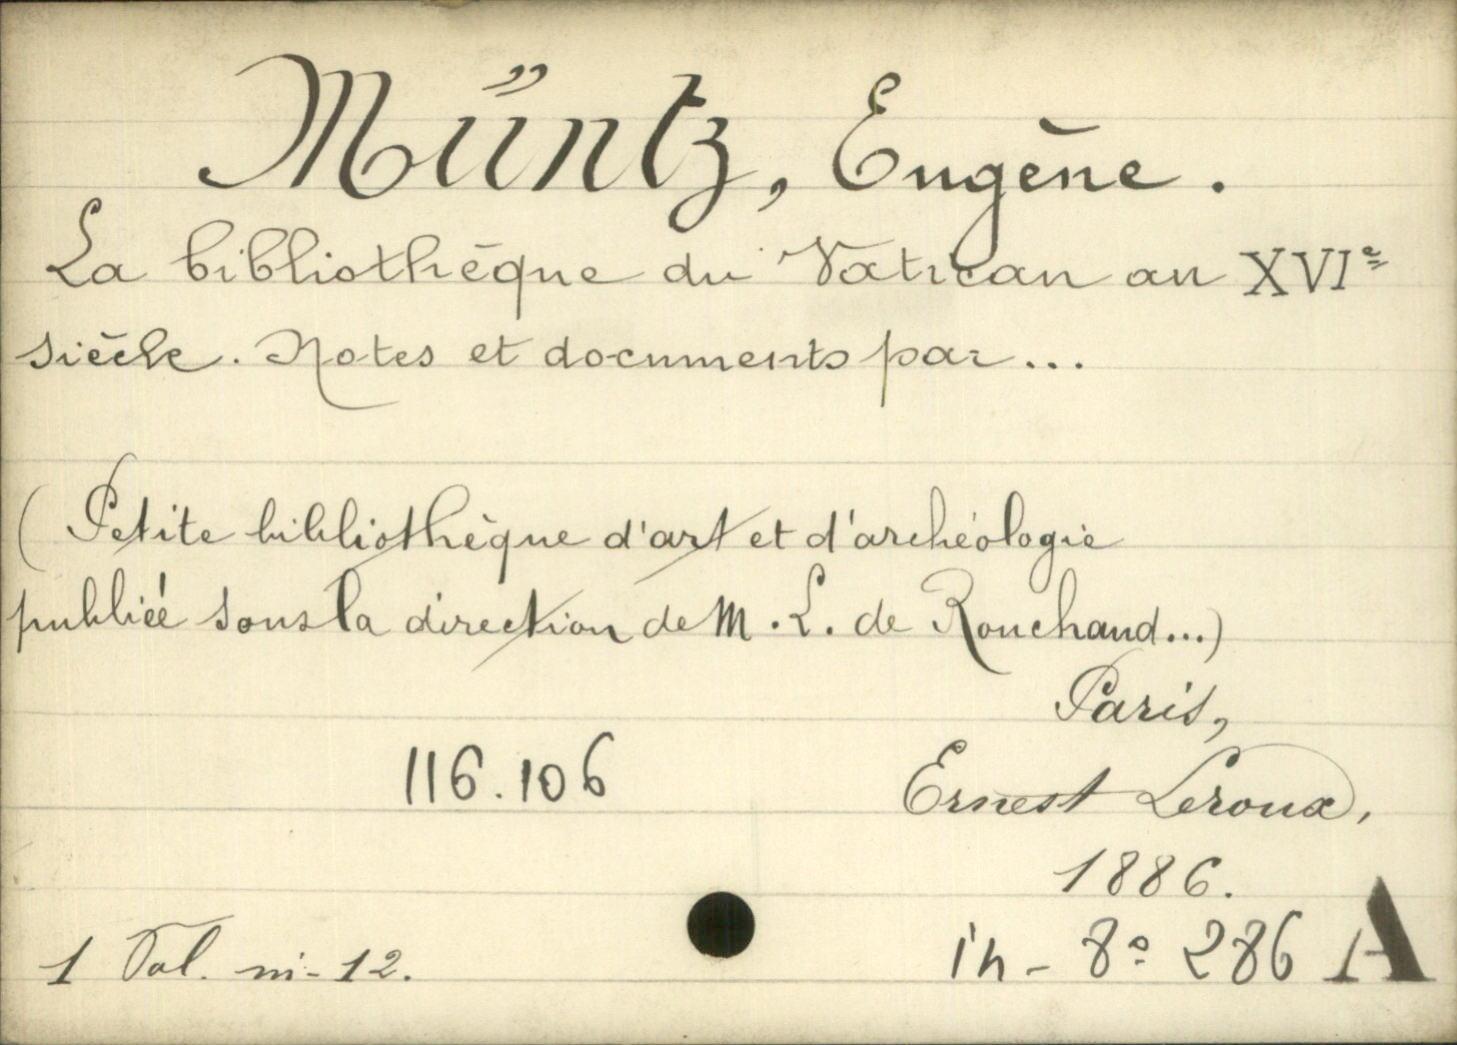 Müntz, Eugène.
La bibliothèque du Vatican au XVIe
siècle. Notes et documents par...
(Petite bibliothèque d'art et d'archéologie
publiée sous la direction de M. L. de Ronchaud...)
Paris,
116.106
Ernest Leroux,
1886.
1 Vol. in-12.
in-8º 286 A